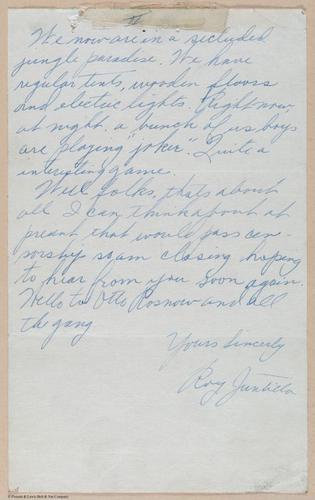 II
We now are in a secluded
jungle paradise. We have
regular tents, wooden floors
and electric lights. Right now,
at night, a "bunch of us boys
are playing joker". Quite a
interesting game.
Well folks, thats about
all I can think about at
preant that would pass cen-
sorship so am closing hoping
to hear from you soon again.
Hello to Otto Rosnow and all
the gang
Yours Sincerly
Roy Juntilla
© Russell & Lewis Bolt & Nut Company